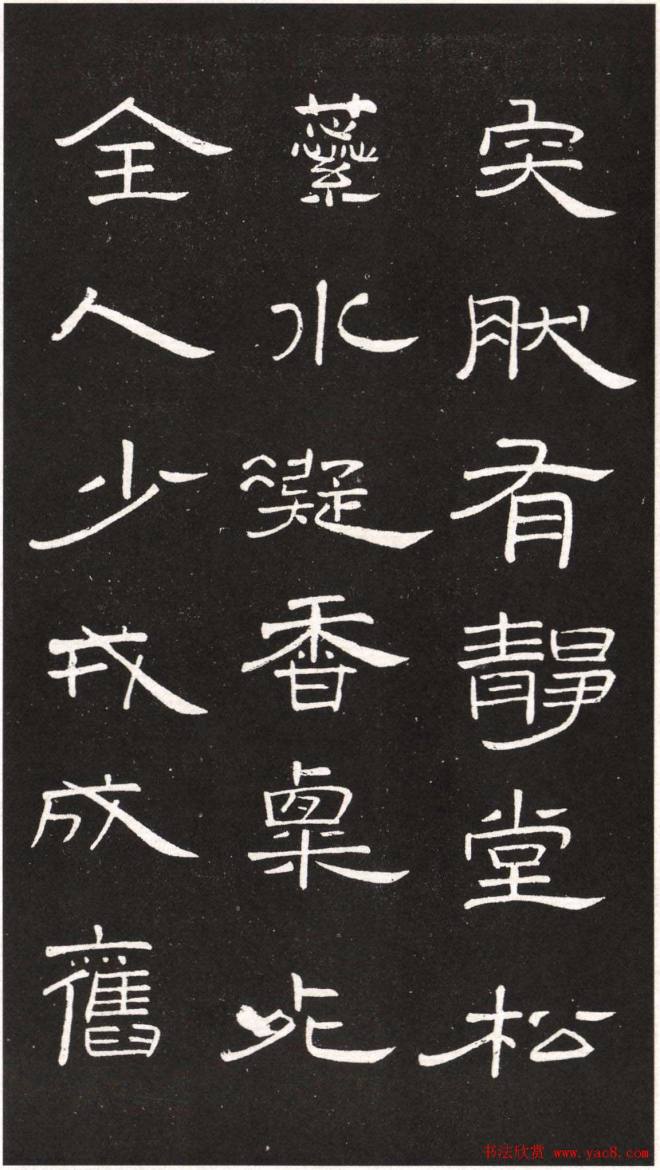 突肰有靜堂松
蘂水凝香㮚
全人少戎成舊
书法欣赏 www.yac8.com